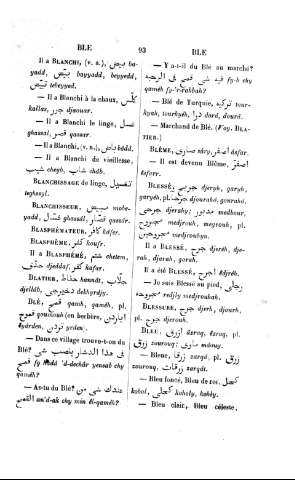 BLE 93 BLE
Il a BLANCHI, (v. a.), بيّض ba-
yadd, بيّض bayyadd, beyyedd,
tebeyyed.
— Il a Blanchi à la chaux, كلّس
kallas, جير djouar.
— Il a Blanchi le linge, غسل
ghassal, قصر qassar.
— Il a Blanchi, (v. n.), باض bâdd.
— Il a Blanchi de vieillesse,
شيب cheyb, شاب châb.
BLANCHISSAGE du linge, تغسيل
teghsyl.
BLANCHISSEUR, مبيض mobe-
yadd, غسّال ghassâl, قصّار qassâr.
BLASPHÉMATEUR, كافر kâfer.
BLASPHÈME, كفر koufr.
BLASPHÉMÉ, شتم chetem,
جدّف djeddef, كفر kafar.
BLATIER, حنّاط hannât, جلّاب
djellâb, دخيرجي dekhyrdjy.
BLÉ, قمح qamh, قمح qaméh, pl.
قموح qoumouh (en berbère, ايردن
ayárden, يردن yrden).
— Dans ce village trouve-t-on du
Blé? في هذا الدشار يصيب شي
قمح fy hâdâ 'd-dechâr yesseb chy
qaméh?
— As-tu du Blé? عندك شي من
القمح an'd-ak chy min êl-qaméh?
— Y a-t-il du Blé au marché?
فيه شي قمح في الرحبه fy-h chy
qaméh fy-'r-rahbah?
— Blé de Turquie, تركيه tour-
kyah, tourkyéh, درا dard, dourd.
— Marchand de Blé. (Voy. BLA-
TIER.)
BLÊME, صاري sâry, اصفر asfar.
— Il est devenu Blême, اصفرّ
esfarr.
BLESSÉ, جريح djeryh, garyh,
yaryh, pl. جرحا djourahâ, gourahâ,
جرحي djerahy; مدبور medbour,
مجروح medjrouh, pl. مجروحين
medjrouhyn.
Il a BLESSÉ, جرح djerèh, dje-
rah, jarah, gerah.
Il a été BLESSÉ, انجرح êdjréh.
— Je suis Blessé au pied, رجلي
مجروحه redjly medjrouhah.
BLESSURE, جرح djerh, djourh,
pl. جروح djerouh.
BLEU, ازرق âzraq, âzreq, pl.
زرق zourouq; ماوي mâouy.
— Bleue, زرقا zarqâ, pl. زرق
zourouq, زرقات zarqât.
— Bleu foncé, Bleu de roi, كحل
kohol, كحلي koholy, kohly.
— Bleu clair, Bleu céleste,